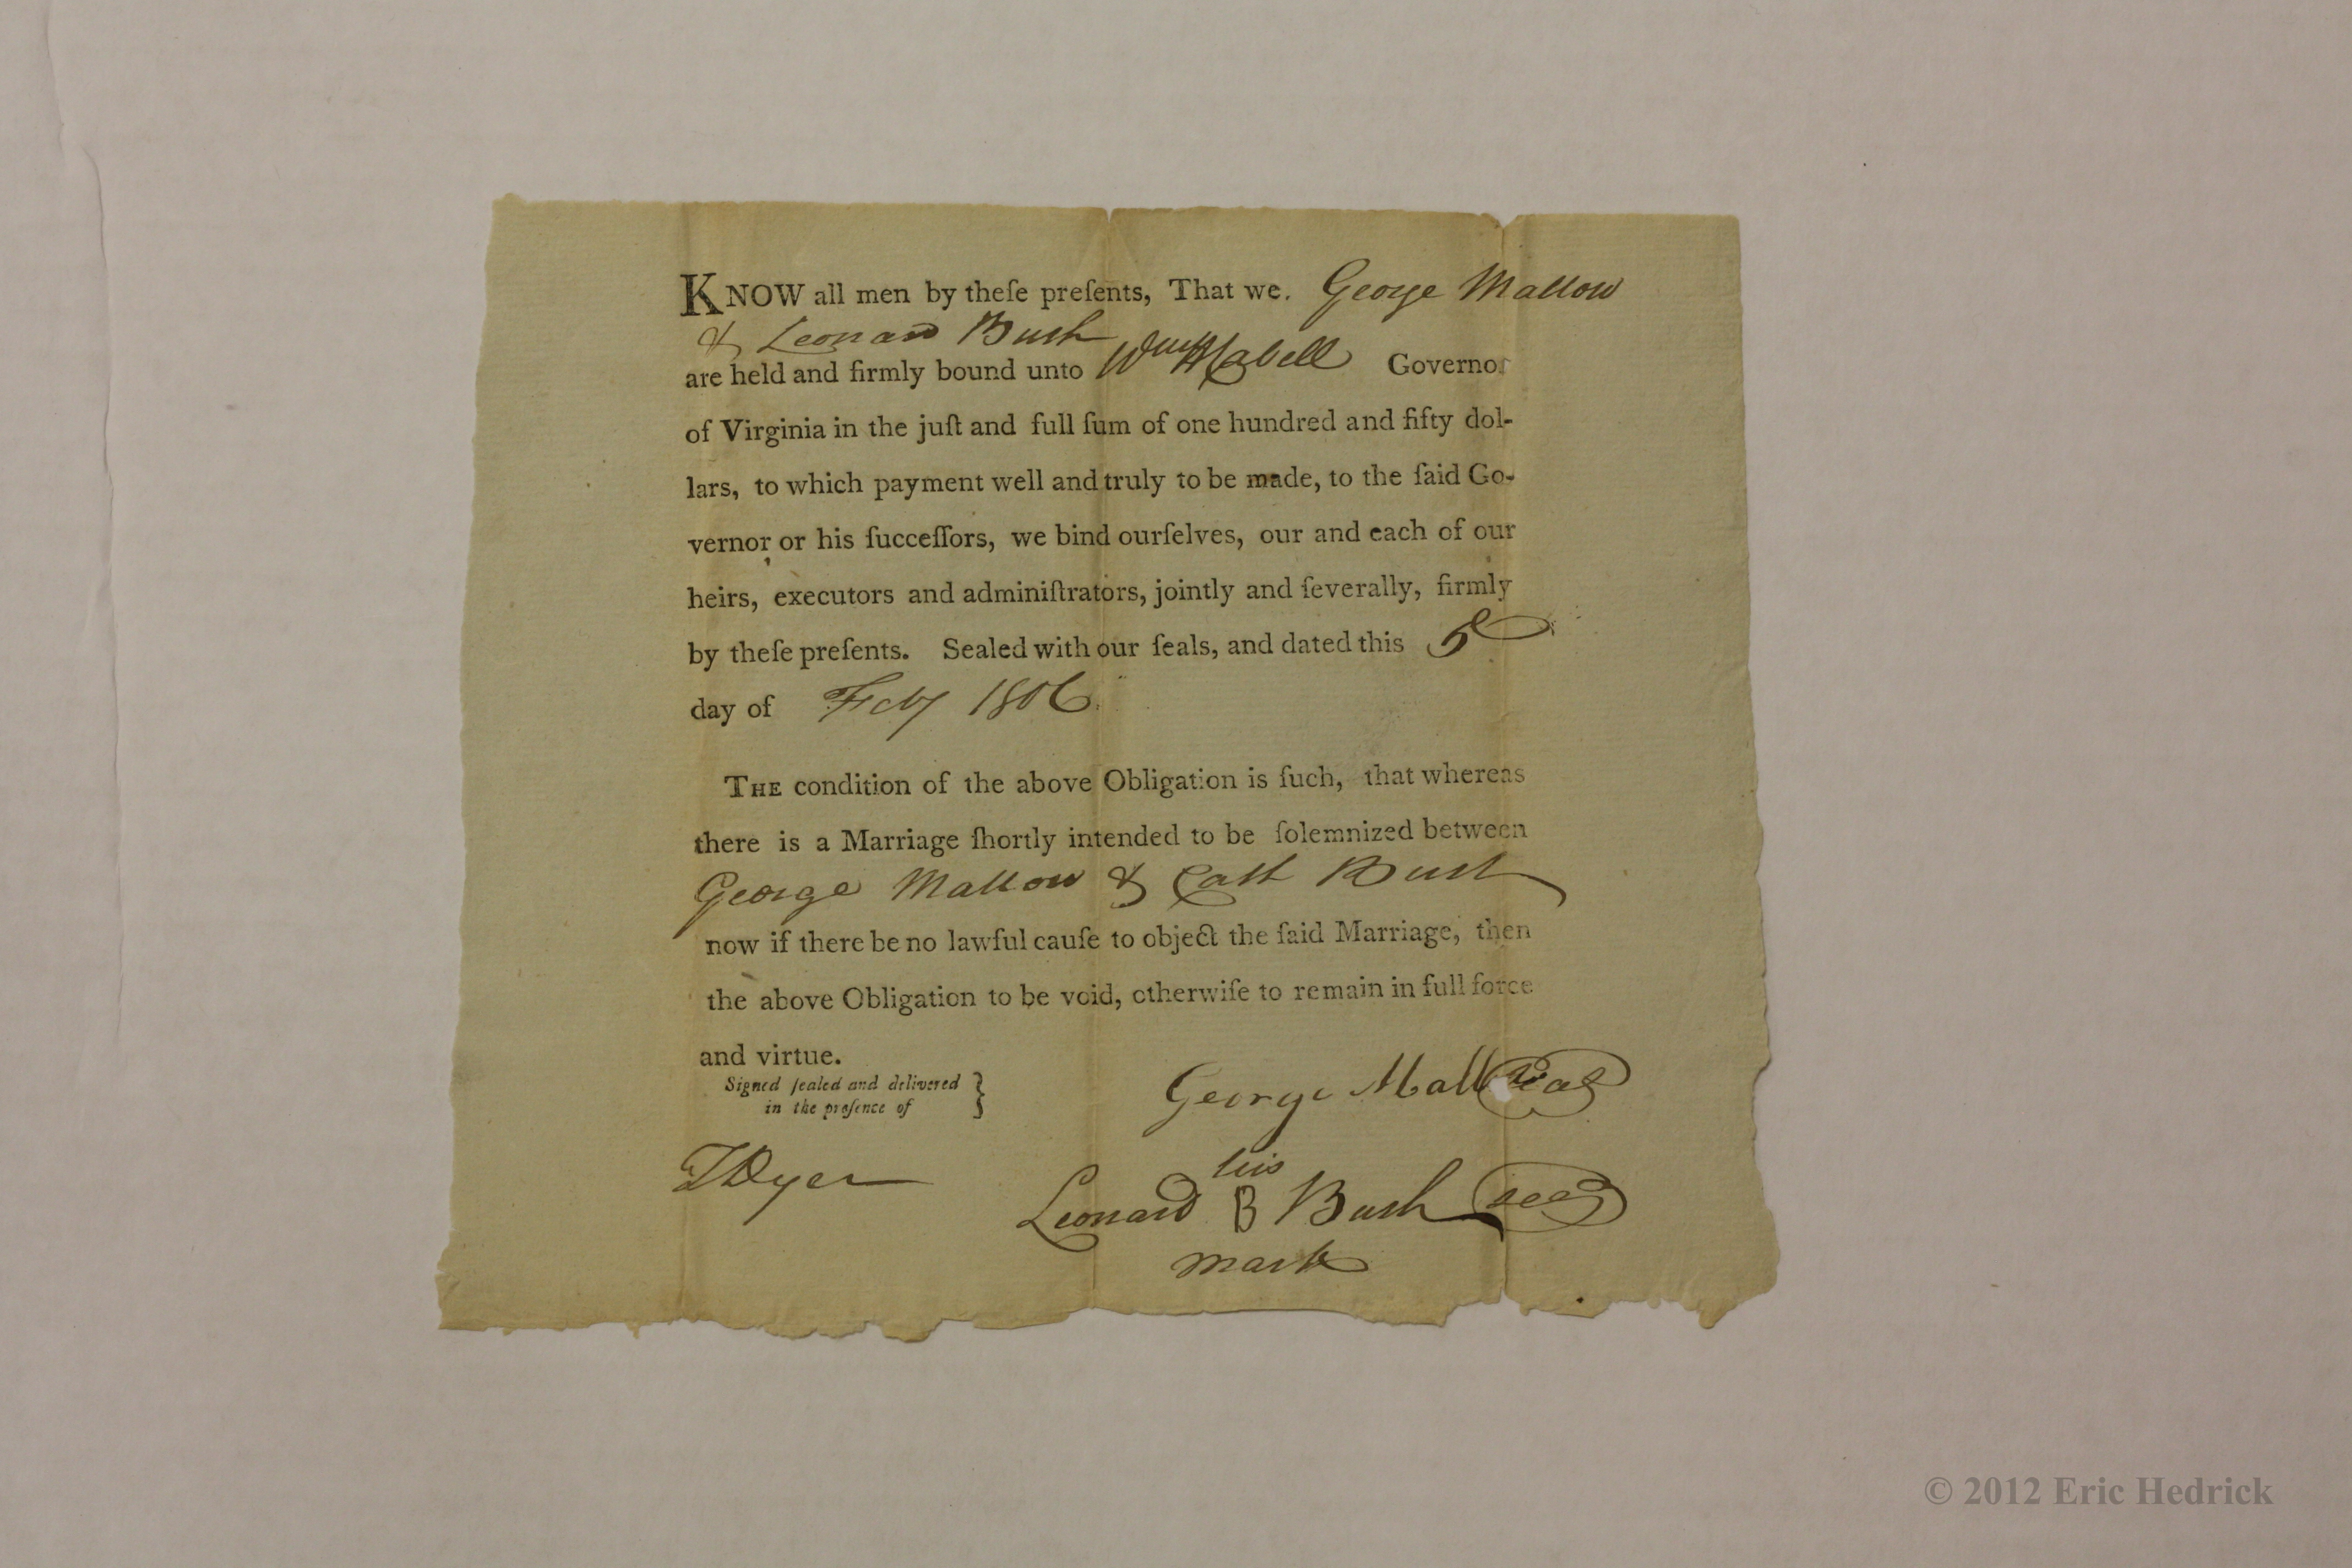 KNOW all men by theſe preſents, That we. George Mallow
& Leonard Bush
are held and firmly bound unto Wm H Cabell Governor
of Virginia in the juſt and full ſum of one hundred and fifty dol-
lars, to which payment well and truly to be made, to the ſaid Go-
vernor or his ſucceſſors, we bind ourſelves, our and each of our
heirs, executors and adminiſtrators, jointly and ſeverally, firmly
by theſe preſents. Sealed with our ſeals, and dated this 5
day of Feby 1806.
THE condition of the above Obligation is ſuch, that whereas
there is a Marriage ſhortly intended to be ſolemnized between
George Mallow & Cath Bush
now if there be no lawful cauſe to object the ſaid Marriage, then
the above Obligation to be void, otherwiſe to remain in full force
and virtue.
Signed ſealed and delivered }
in the preſence of
George Mall seal
his
Leonard B Bush seal
mark
Dyer
© 2012 Eric Hedrick